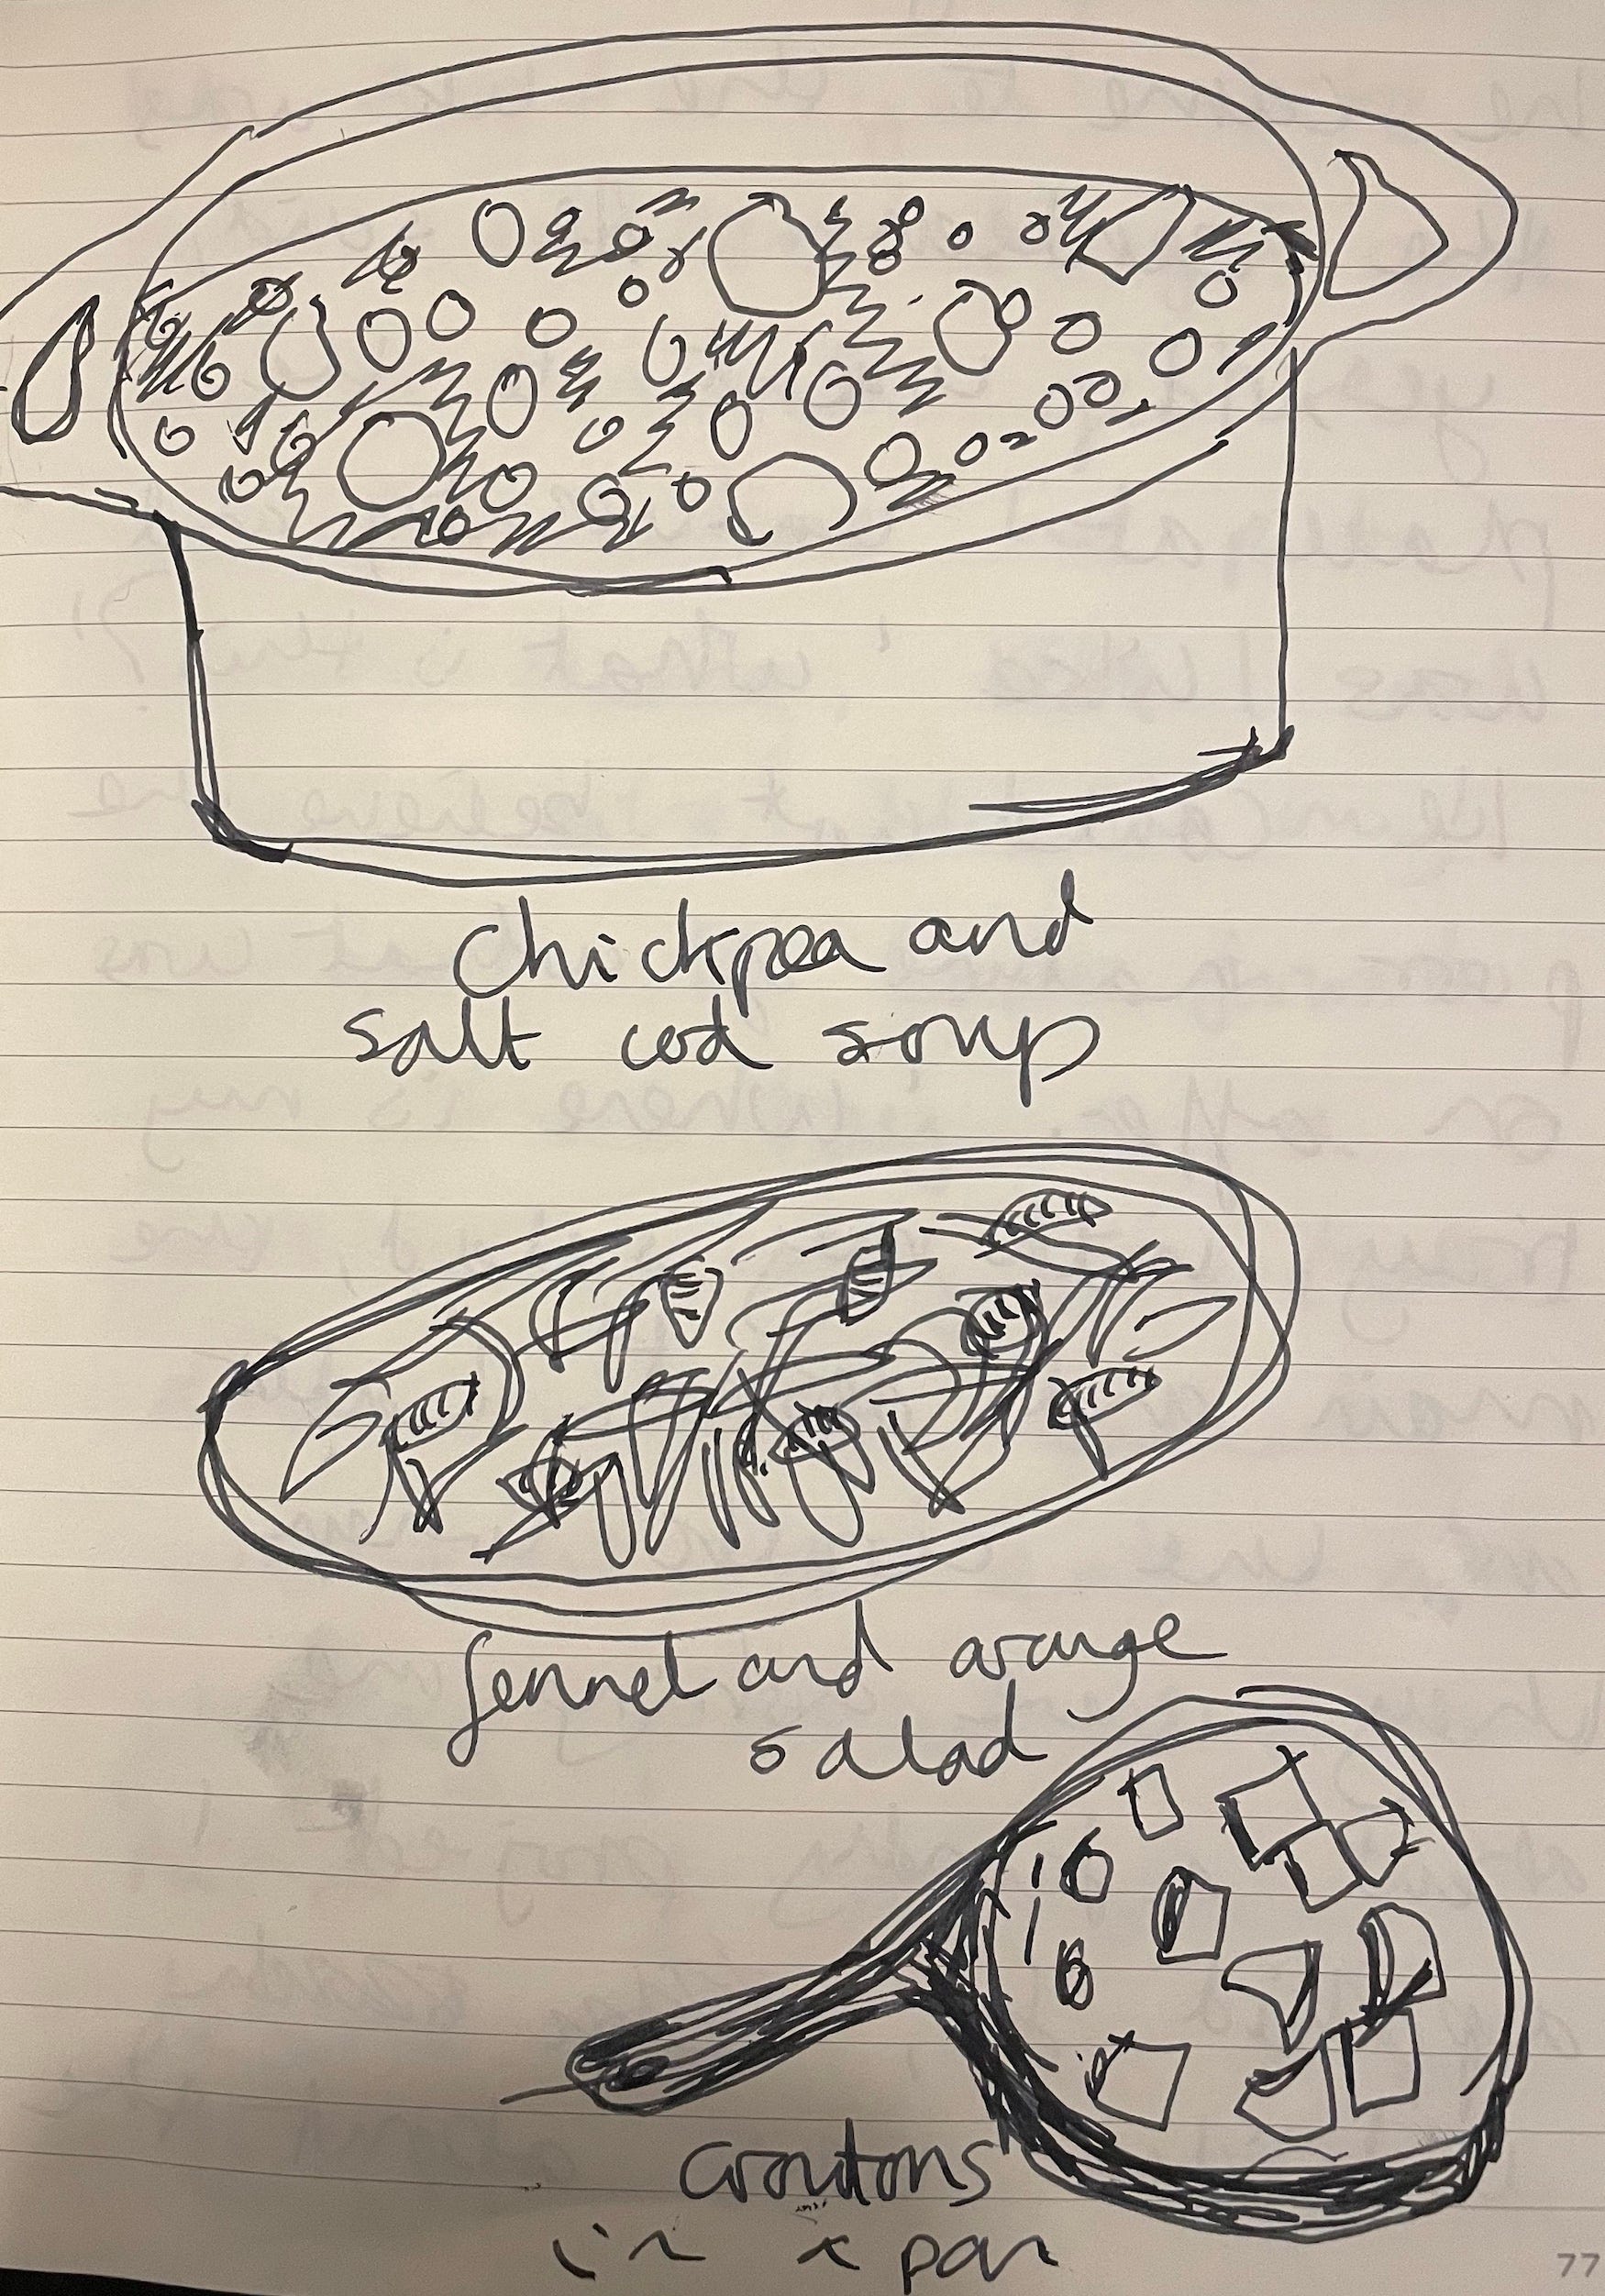 Chickpea and
salt cod soup
fennel and orange
salad
croutons
in a pan
77